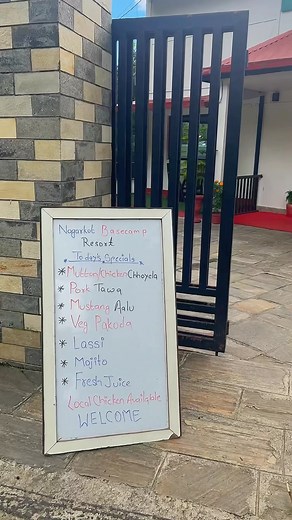 Nagarkot Basecamp
Resort
Today's Specials
* Mutton/Chicken Chhoyela
* Pork Tawa
* Mustang Aalu
* Veg Pakoda
* Lassi
* Mojito
* Fresh Juice
Local Chicken Available
WELCOME